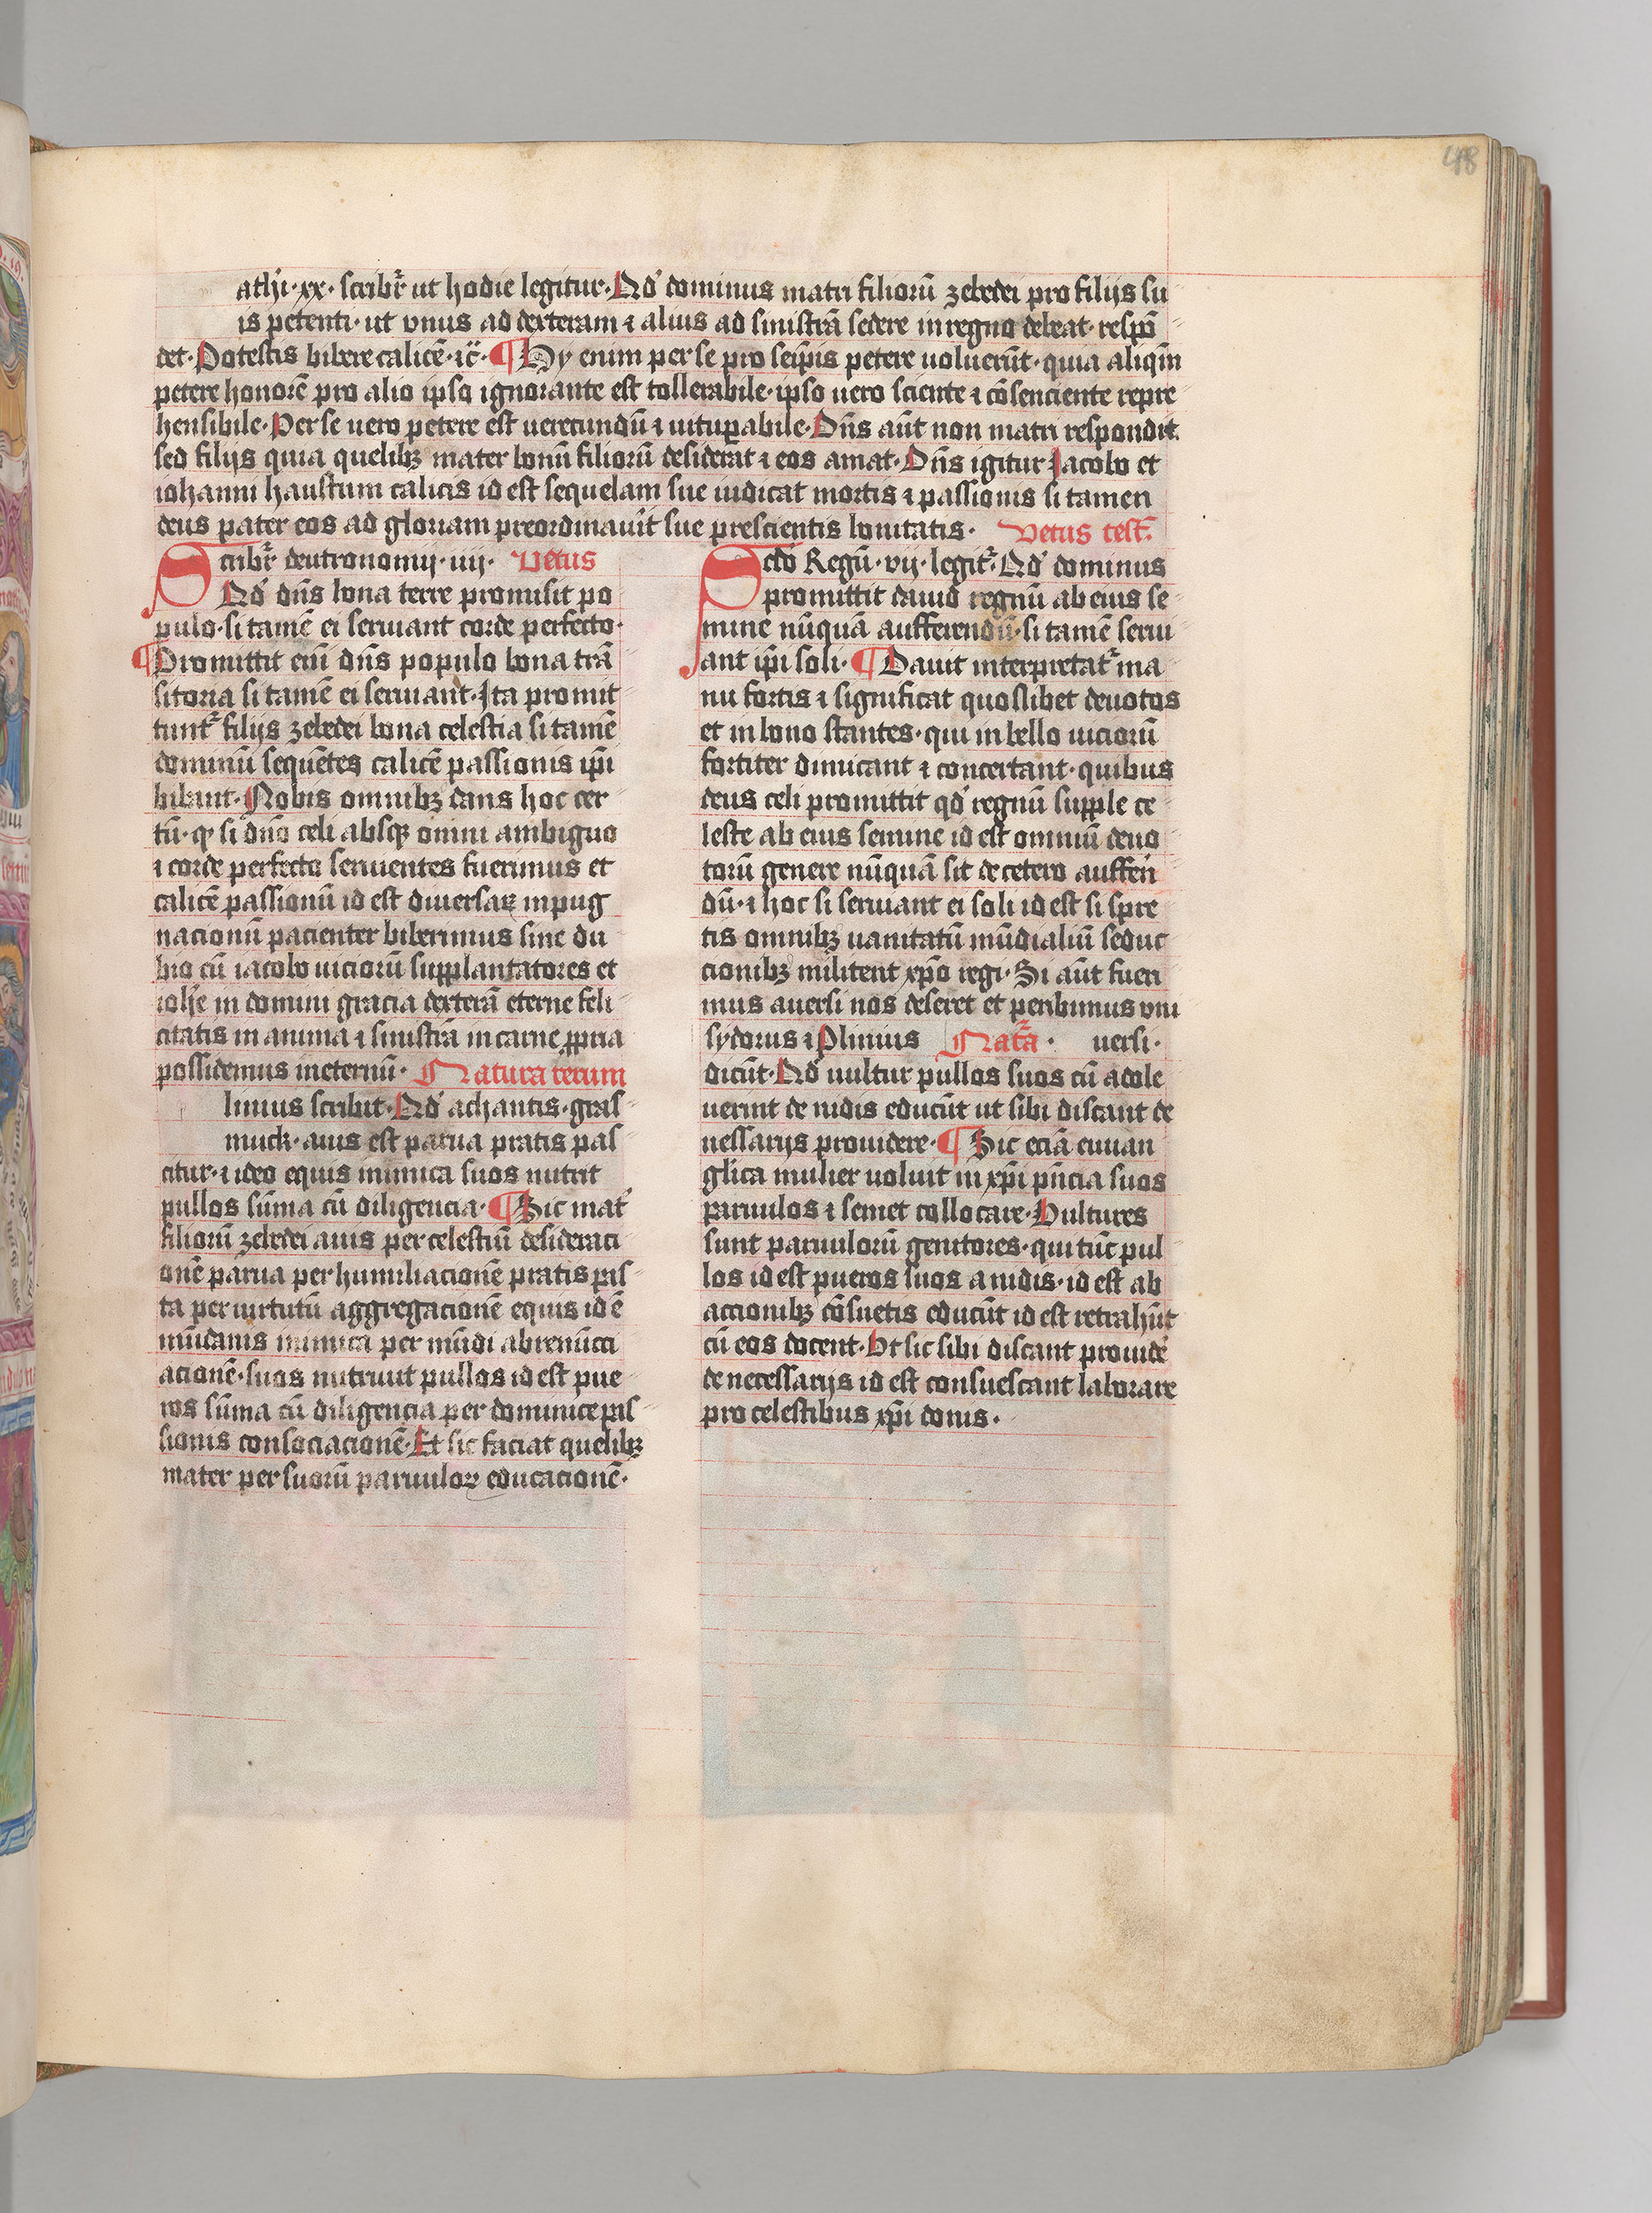 48
athi·xx· scribr̄ ut hodie legitur· Qd' dominus matri filiorū zebedei pro filijs su
is petenti· ut vnus ad dexteram ⁊ alius ad sinistrā sedere in regno debeat· respō
det· Potestis bibere calicē· ⁊c̄· ¶ Hy enim per se pro seip̄is petere uoluerūt· quia aliqm̄
petere honorē pro alio ipso ignorante est tollerabile· ipso uero sciente ⁊ cōsenciente repre
hensibile· Per se uero petere est uerecundū ⁊ uituꝑabile· Dn̄s aūt non matri respondit
sed filijs quia quelibꝫ mater bonū filiorū desiderat ⁊ eos amat· Dn̄s igitur Jacobo et
iohanni haustum calicis id est sequelam sue iudicat mortis ⁊ passionis si tamen
deus pater eos ad gloriam preordinauit sue prescientis bonitatis· Vetus test̄·
Scribr̄ deutronomij· iiij· Vetus
Qd' dn̄s bona terre promisit po
pulo· si tamē ei seruiant corde perfecto·
¶ Promittit eni̅ dn̄s populo bona trā
sitoria si tamē ei seruiant· Ita promit
tunt᷑ filijs zebedei bona celestia si tamē
dominū sequētes calicē passionis ip̄i
bibant· Nobis omnibꝫ dans hoc cer
tū· ꝙ si dn̄o celi absqꝫ omni ambiguo
⁊ corde perfecto seruientes fuerimus et
calicē passionū id est diuersaꝝ inpug
nacionū pacienter biberimus sine du
bio cū iacobo uiciorū supplantatores et
ioh̄e in domini gracia dexterā eterne feli
citatis in anima ⁊ sinistrā in carne ꝓpria
possidemus ineternū· Natura rerum
linius scribit· Qd' achantis· gras
muck· auis est parua pratis pas
citur· ⁊ ideo equis inimica suos nutrit
pullos sūma cū diligencia· ¶ Sic mat'
filiorū zebedei auis per celestiū desideraci
onē parua per humiliacionē pratis pas
ta per uirtutū aggregacionē equis id ē
mūdanis inimica per mūdi abrenūcci
acionē· suos nutriuit pullos id est pue
ros sūma cū diligencia per dominice pas
sionis consociacionē· Et sic faciat quelibꝫ
mater per suorū paruuloꝝ educacionē·
Scd̄o Regū· vij· legit᷑· Qd' dominus
promittit dauid regnū ab eius se
mine nūquā aufferendū· si tamē serui
ant ip̄i soli· ¶ Dauit interpretat᷑ ma
nu fortis ⁊ significat quoslibet deuotos
et in bono stantes· qui in bello uiciorū
fortiter dimicant ⁊ concertant· quibus
deus celi promittit qd' regnū supple ce
leste ab eius semine id est omniū deuo
torū genere nūquā sit de cetero aufferē
dū· ⁊ hoc si seruiant ei soli id est si spre
tis omnibꝫ uanitatū mūdialiū seduc
cionibꝫ militent xp̄o regi· Si aūt fueri
mus auersi nos deseret et peribimus vni
sydorus ⁊ Plinius Nat᷑a· uersi·
dicūt· Qd' uultur pullos suos cū adole
uerint de nidis educūt ut sibi discant de
nessarijs prouidere· ¶ Sic eciā ewan
glica mulier uoluit in xp̄i pn̄cia suos
paruulos ⁊ semet collocare· Vultures
sunt paruulorū genitores· qui tūc pul
los id est pueros suos a nidis· id est ab
accionibꝫ cōsuetis educūt id est retrahūt
cū eos docent· Ut sic sibi discant prouide'
de necessarijs id est consuescant laborare
pro celestibus xp̄i donis·